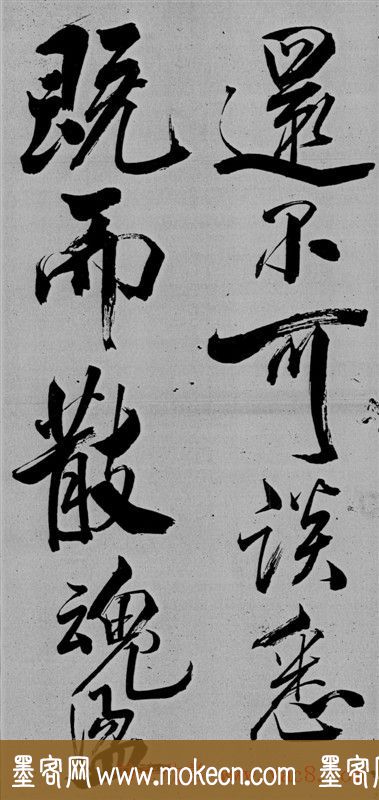 還不可談悉
既而散魂
墨客网 www.mokecn.com 墨客网